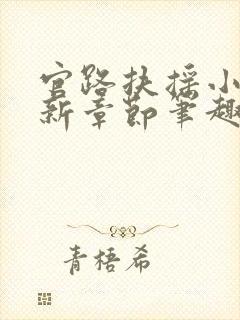 官路扶摇小
新章节笔趣
青梧希